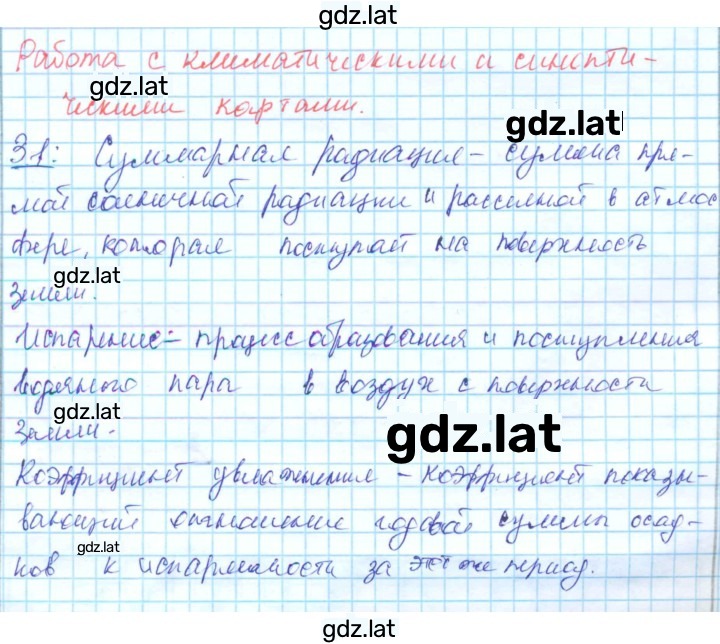 gdz.lat
Работа с климатическими и синопти-
gdz.lat
ческими картами.
gdz.lat
31: Суммарная радиация - сумма пря-
мой солнечной радиации и рассеяной в атмос
фере, которая поступает на поверхность
gdz.lat
Земли.
Испарение - процесс образования и поступления
водяного пара в воздух с поверхности
gdz.lat
Земли.
gdz.lat
Коэффициент увлажнения - коэффициент показы-
вающий отношение годовой суммы осад-
gdz.lat
ков к испаряемости за этот же период.
gdz.lat